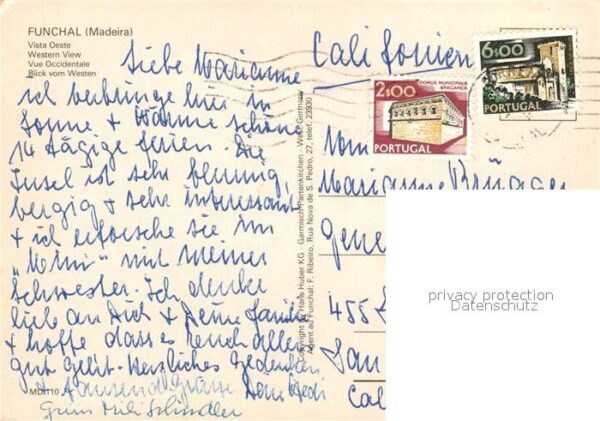 FUNCHAL (Madeira)
Vista Oeste
Western View
Vue Occidentale
Blick vom Westen
Liebe Marianne
ich verbringe hier in
Sonne + Wärme schöne
14 tägige Ferien. Die
Insel ist sehr blumig,
bergig + sehr interessant
+ ich erforsche sie im
"Mini" mit meiner
Schwester. Ich denke
lieb an Dich + Deine Familie
+ hoffe dass es Euch allen
gut geht. Herzliches Gedenken
+ tausend Grüsse Deine
Gruss Mili Schindler
MD 110
Copyright by Hans Huber KG - Garmisch-Partenkirchen - West Germany
Agent au Funchal: F. Ribeiro, Rua Nova de S. Pedro, 27, telef: 23930
Californien
2$00
DOMUS MUNICIPALIS
BRAGANÇA
PORTUGAL
6$00
PORTUGAL
Marianne Brügger
Gene
455
San
Cal
privacy protection
Datenschutz